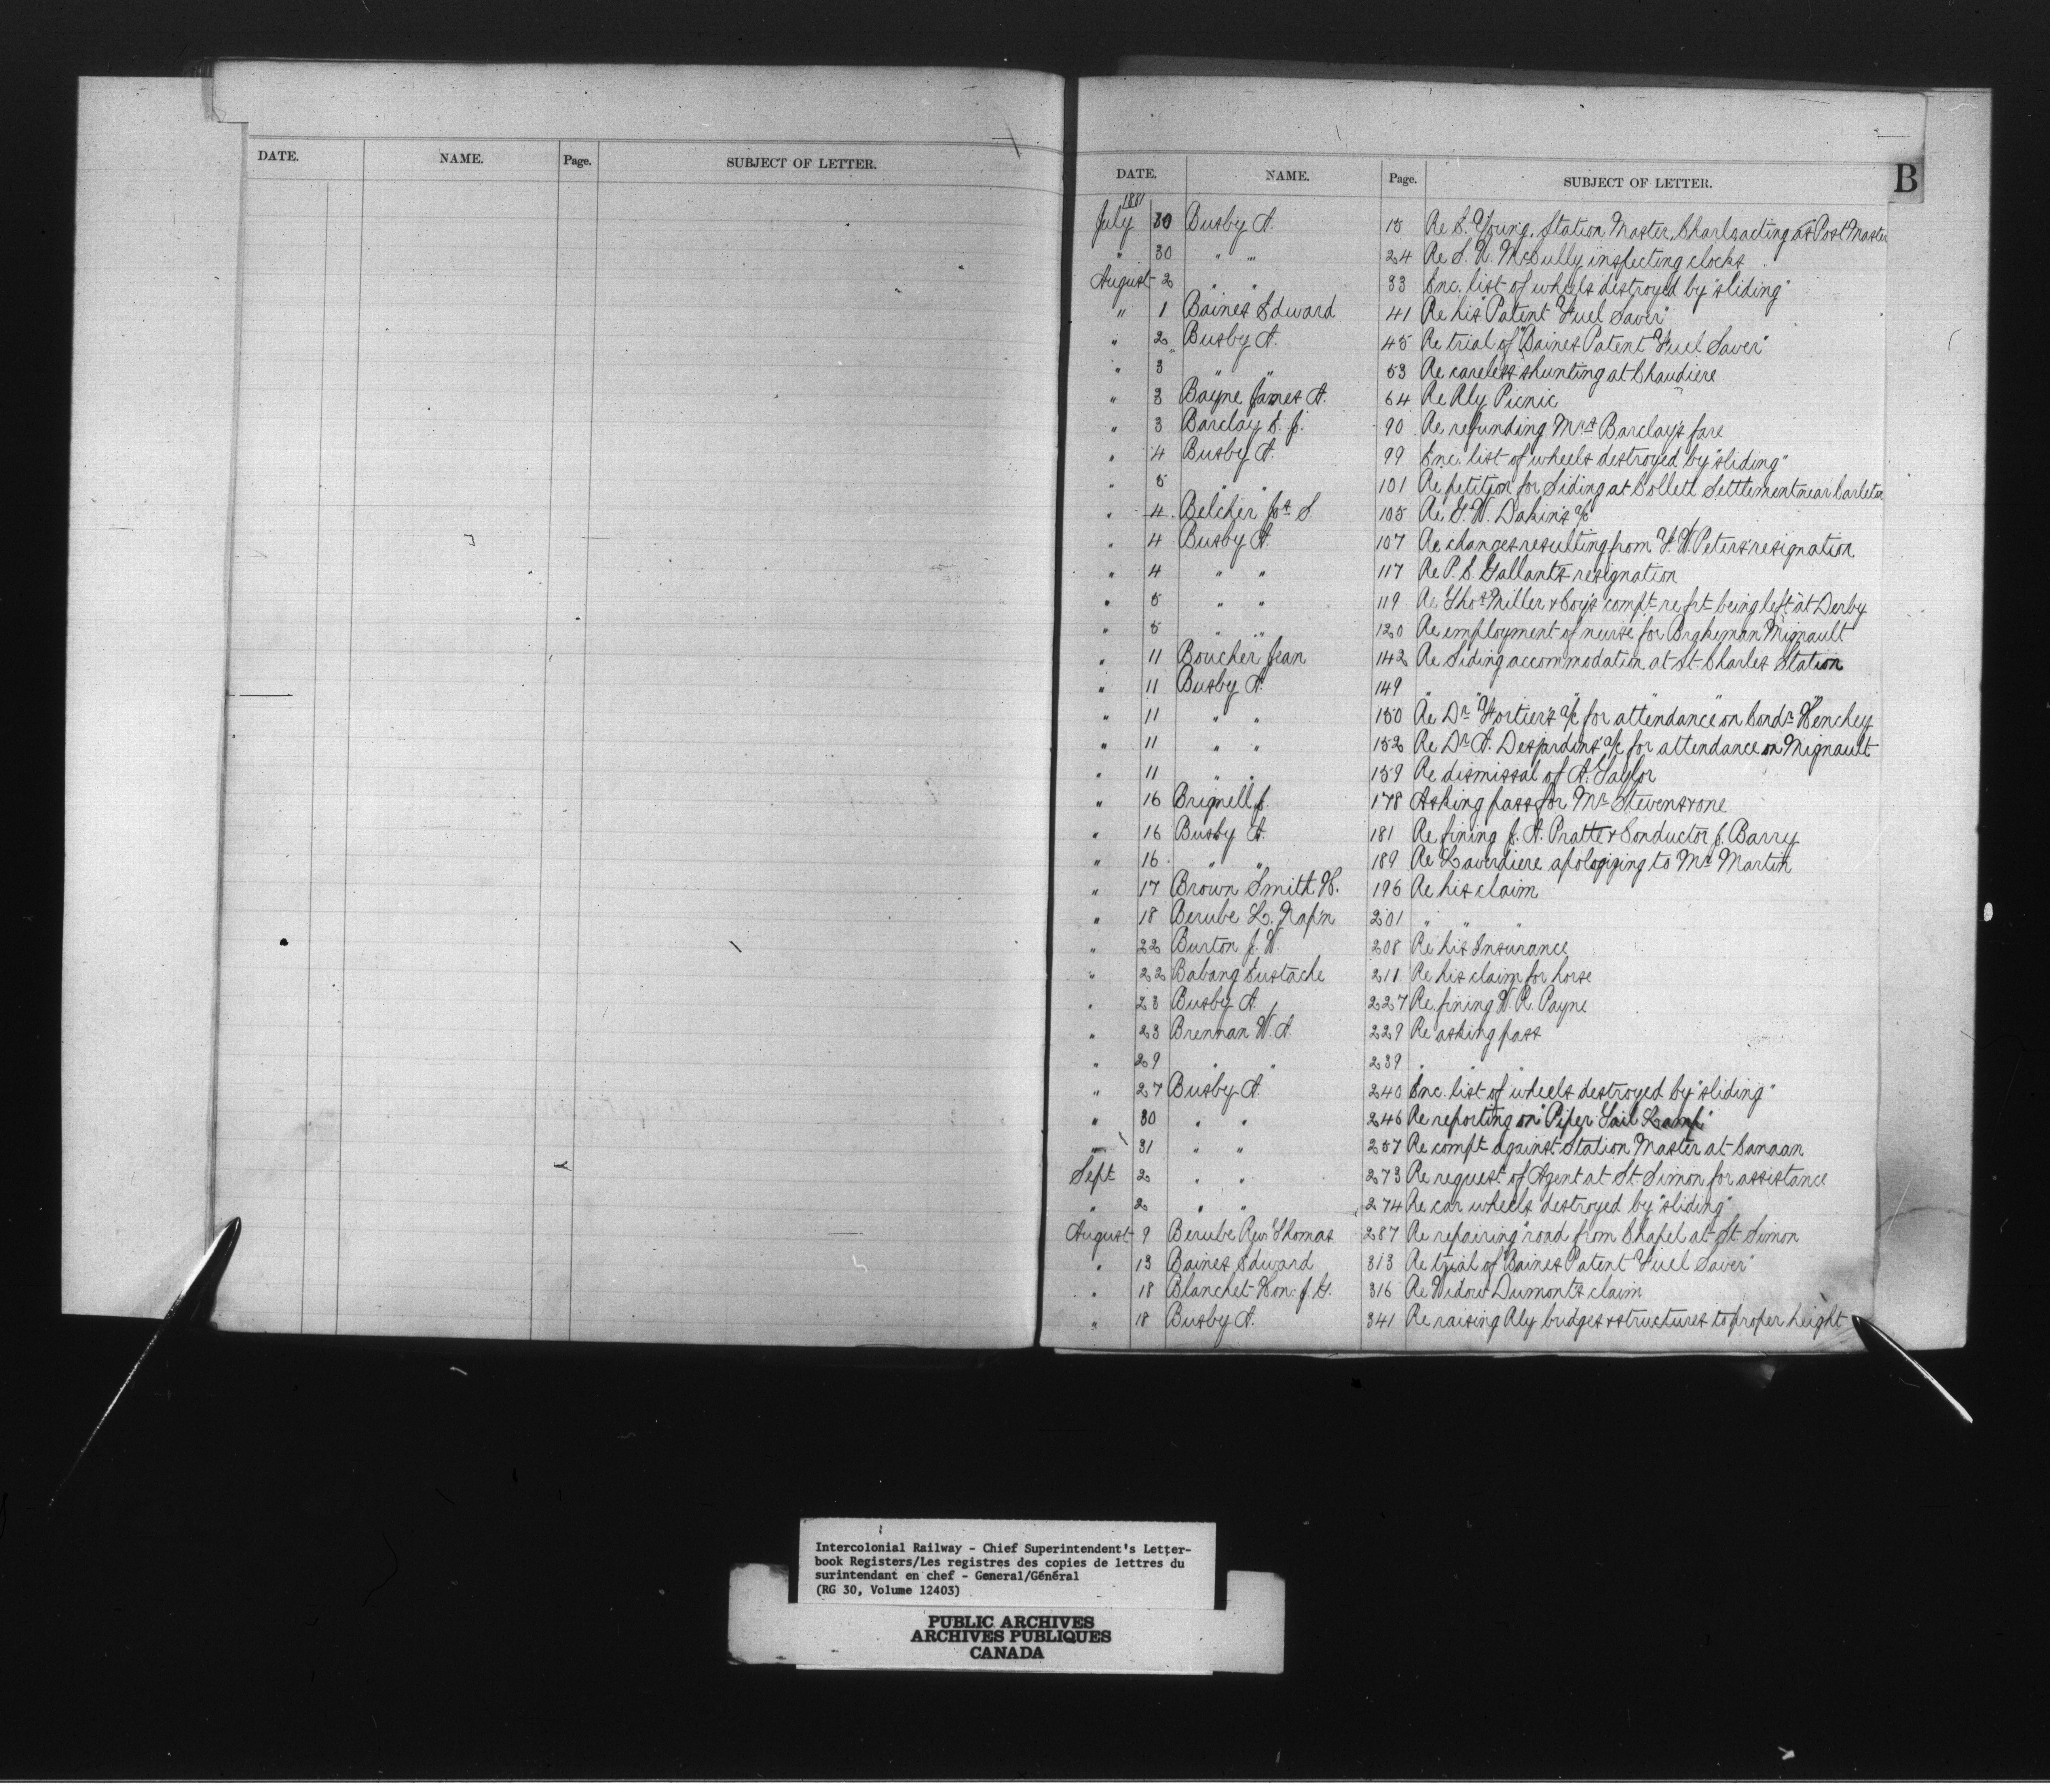 DATE. NAME. Page. SUBJECT OF LETTER.
DATE. NAME. Page. SUBJECT OF LETTER. B
1881
July 30 Busby A. 15 Re S. Young, Station Master, acting as Post Master
" 30 " " 24 Re inspecting clocks
August 2 " " 33 Enc. list of wheels destroyed by "sliding"
" 1 Baines Edward 41 Re his Patent "Fuel Saver"
" 2 Busby A. 45 Re trial of "Baines Patent Fuel Saver"
" 3 " " 53 Re careless shunting at Chaudiere
" 3 Bayne James A. 64 Re Rly Picnic
" 3 Barclay 90 Re refunding Mrs Barclay's fare
" 4 Busby A. 99 Enc. list of wheels destroyed by "sliding"
" 5 " " 101 Re petition for Siding at Collett Settlement near Carleton
" 4 Belcher Jos. S. 105 Re Dakin's a/c
" 4 Busby A. 107 Re changes resulting from F. W. Peters' resignation
" 4 " " 117 Re P. S. Gallant's resignation
" 5 " " 119 Re Thos Miller & Coy's compt re frt being left at Derby
" 5 " " 120 Re employment of nurse for Brakeman Mignault
" 11 Boucher Jean 142 Re Siding accommodation at St. Charles Station
" 11 Busby A. 149 " " " " " "
" 11 " " 150 Re Dr Fortier's a/c for attendance on Condr Henchey
" 11 " " 152 Re Dr A. Desjardins' a/c for attendance on Mignault
" 11 " " 159 Re dismissal of A. Taylor
" 16 Brignell J. 178 Asking pass for Mr Stevens
" 16 Busby A. 181 Re fining J. A. Pratte & Conductor J. Barry
" 16 " " 189 Re Laverdiere apologizing to Mr Martin
" 17 Brown Smith H. 196 Re his claim
" 18 Berube L. Nap'n 201 " " "
" 22 Burton J. W. 208 Re his Insurance
" 22 Babang Eustache 211 Re his claim for horse
" 23 Busby A. 227 Re fining W. R. Payne
" 23 Brennan W. A. 229 Re asking pass
" 29 " " 239 " " "
" 27 Busby A. 240 Enc. list of wheels destroyed by "sliding"
" 30 " " 246 Re reporting on "Piper Tail Lamp"
" 31 " " 257 Re compt against Station Master at Canaan
Sept 2 " " 273 Re request of Agent at St. Simon for assistance
" 2 " " 274 Re car wheels destroyed by "sliding"
August 9 Berube Rev Thomas 287 Re repairing road from Chapel at St. Simon
" 13 Baines Edward 313 Re trial of "Baines Patent Fuel Saver"
" 18 Blanchet Hon: J. G. 316 Re Widow Dumont's claim
" 18 Busby A. 341 Re raising Rly bridges & structures to proper height
Intercolonial Railway - Chief Superintendent's Letter-
book Registers/Les registres des copies de lettres du
surintendant en chef - General/Général
(RG 30, Volume 12403)
PUBLIC ARCHIVES
ARCHIVES PUBLIQUES
CANADA